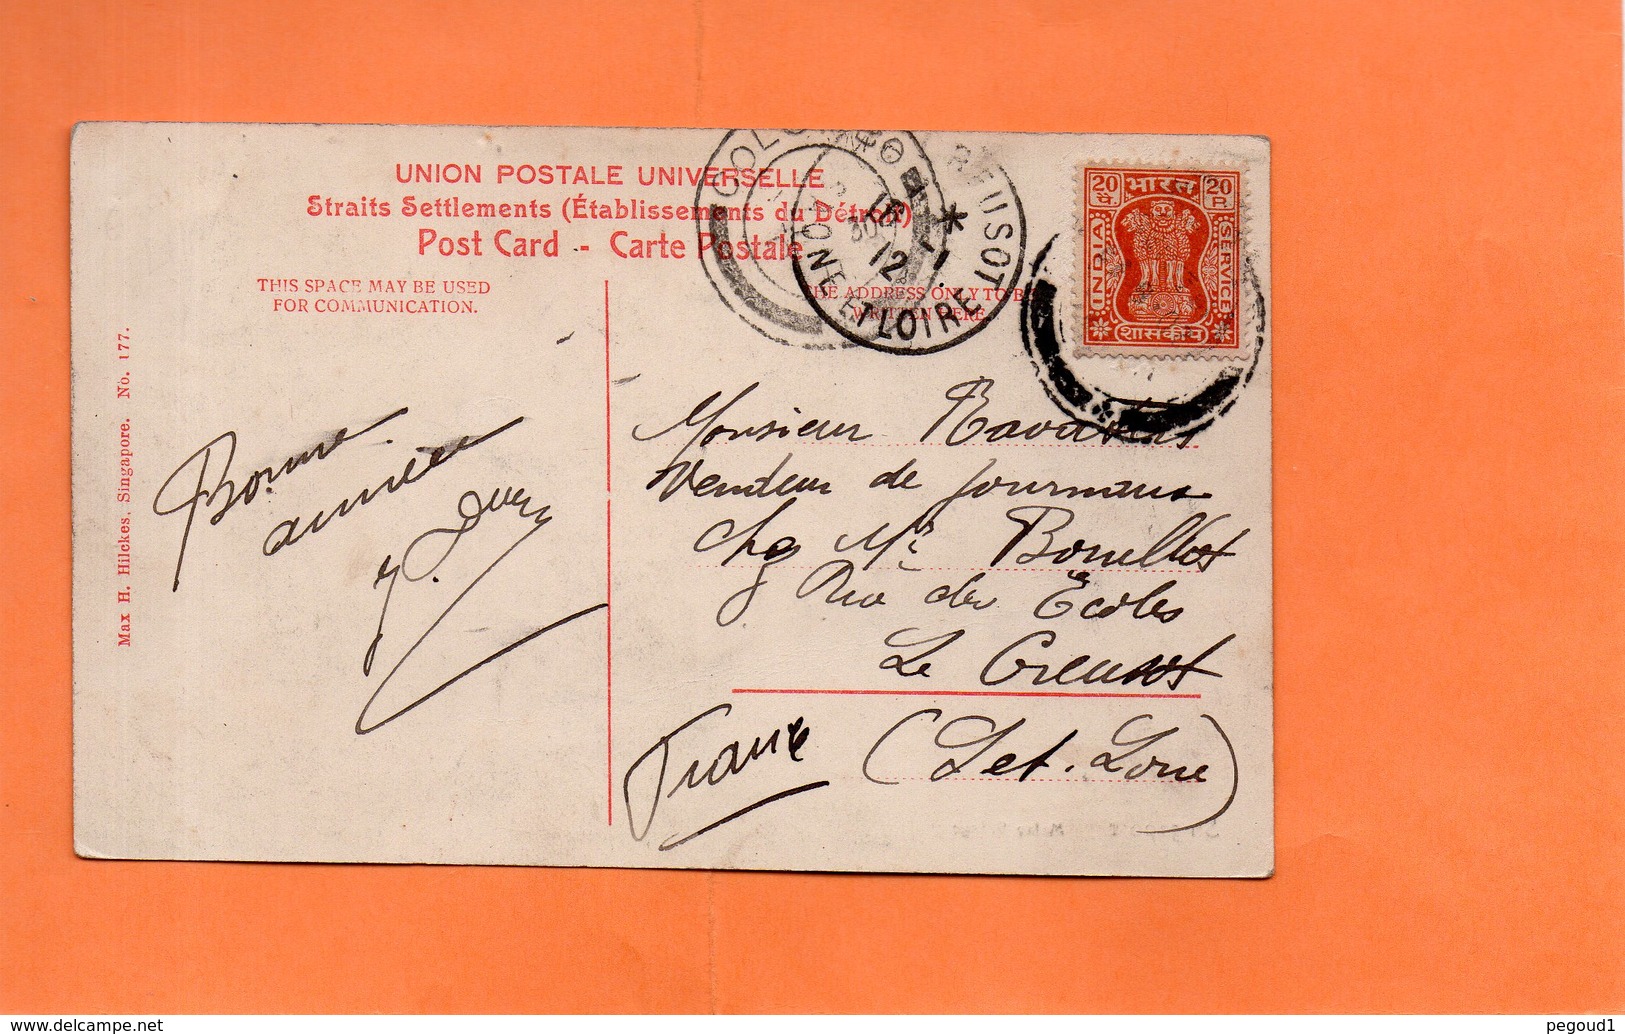 UNION POSTALE UNIVERSELLE
Straits Settlements (Établissements du Détroit)
Post Card - Carte Postale
THIS SPACE MAY BE USED
FOR COMMUNICATION.
THE ADDRESS ONLY TO BE
WRITTEN HERE
Max H. Hilckes, Singapore. No. 177.
COLOMBO
CREUSOT
SAONE ET LOIRE
16
12
20 भारत 20
पै. P.
INDIA
SERVICE
शासकीय
Bonne
année
Monsieur
Vendeur de journaux
chez Mr Bouillot
8 Rue des Ecoles
Le Creusot
(S et Loire)
France
pegoud1